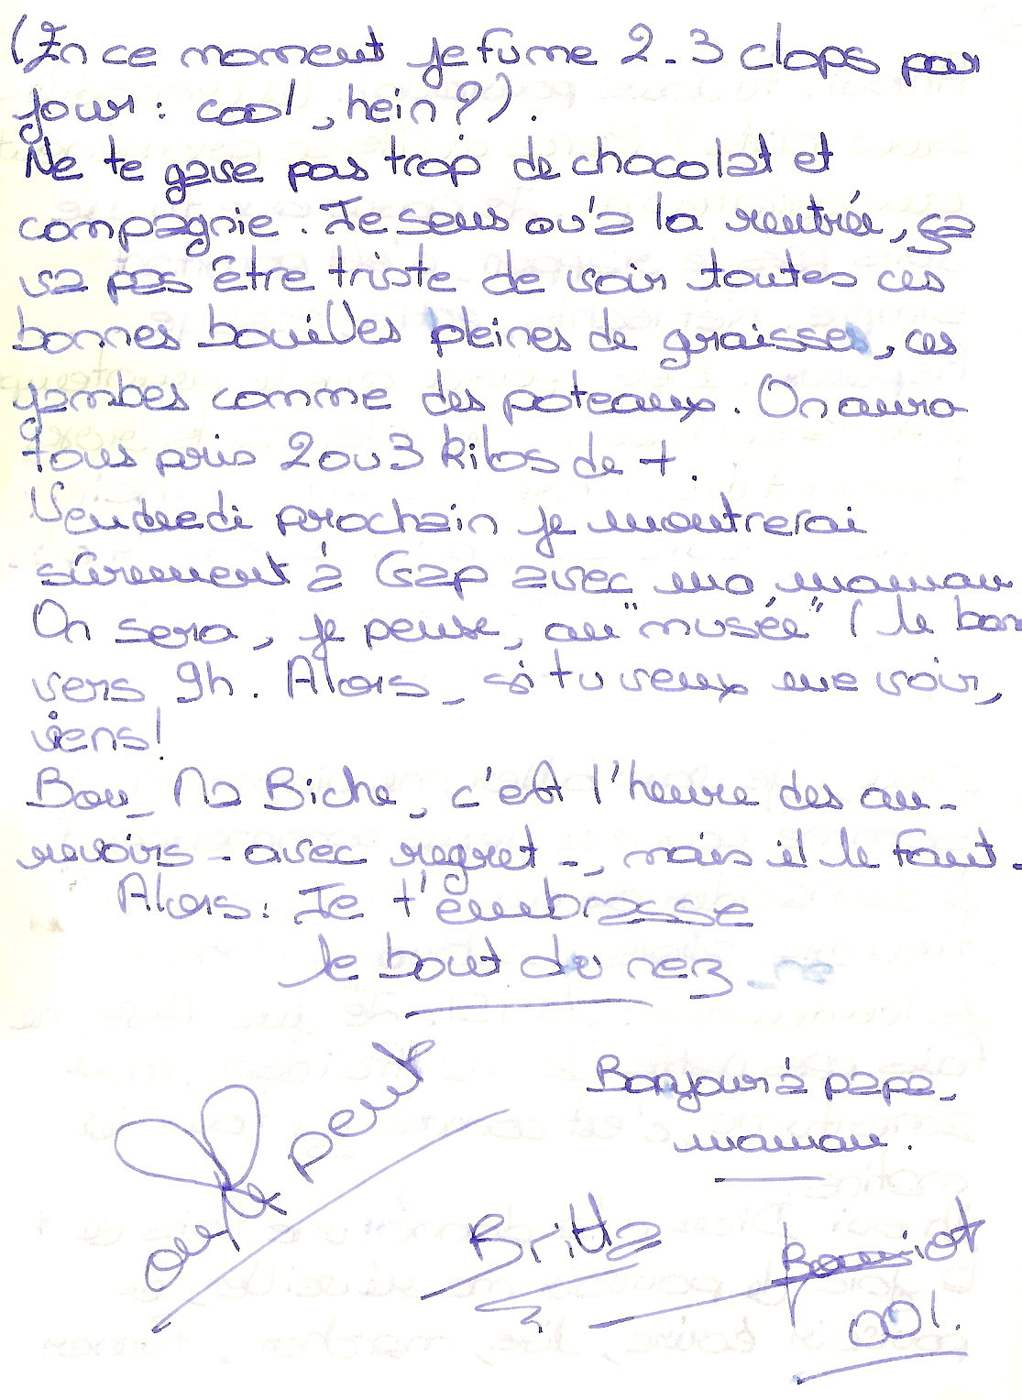 (En ce moment je fume 2-3 clops par
jour : cool, hein ?).
Ne te gave pas trop de chocolat et
compagnie. Je sens qu'à la rentrée, ça
va pas être triste de voir toutes ces
bonnes bouilles pleines de graisses, ces
jambes comme des poteaux. On aura
tous pris 2 ou 3 kilos de +.
Vendredi prochain je montrerai
sûrement à Gap avec ma maman
On sera, je pense, au "musée" ( le bar
vers 9h. Alors, si tu veux me voir,
viens!
Bon, Ma Biche, c'est l'heure des au-
revoirs - avec regret -, mais il le faut.
Alors : Je t'embrasse
le bout du nez
Bonjour à papa,
maman.
Britta
001.